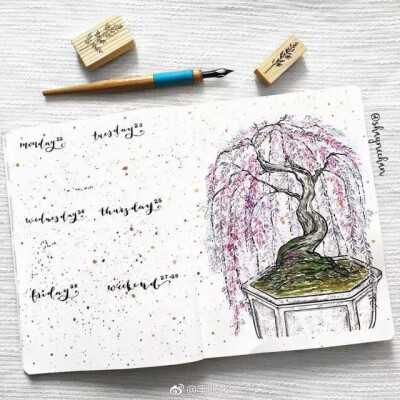 monday 22 tuesday 23
wednesday 24 thursday 25
friday 26 weekend 27-28